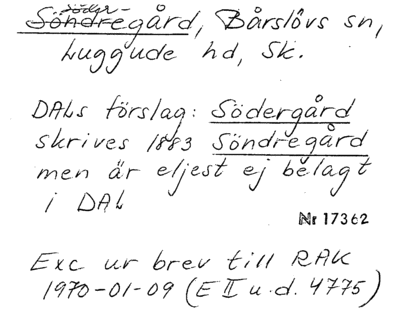 Söder-
Söndregård, Bårslövs sn,
Luggude hd, Sk.
DALs förslag: Södergård
skrives 1883 Söndregård
men är eljest ej belagt
i DAL
Nr 17362
Exc ur brev till RAK
1970-01-09 (E II u.d. 4775)